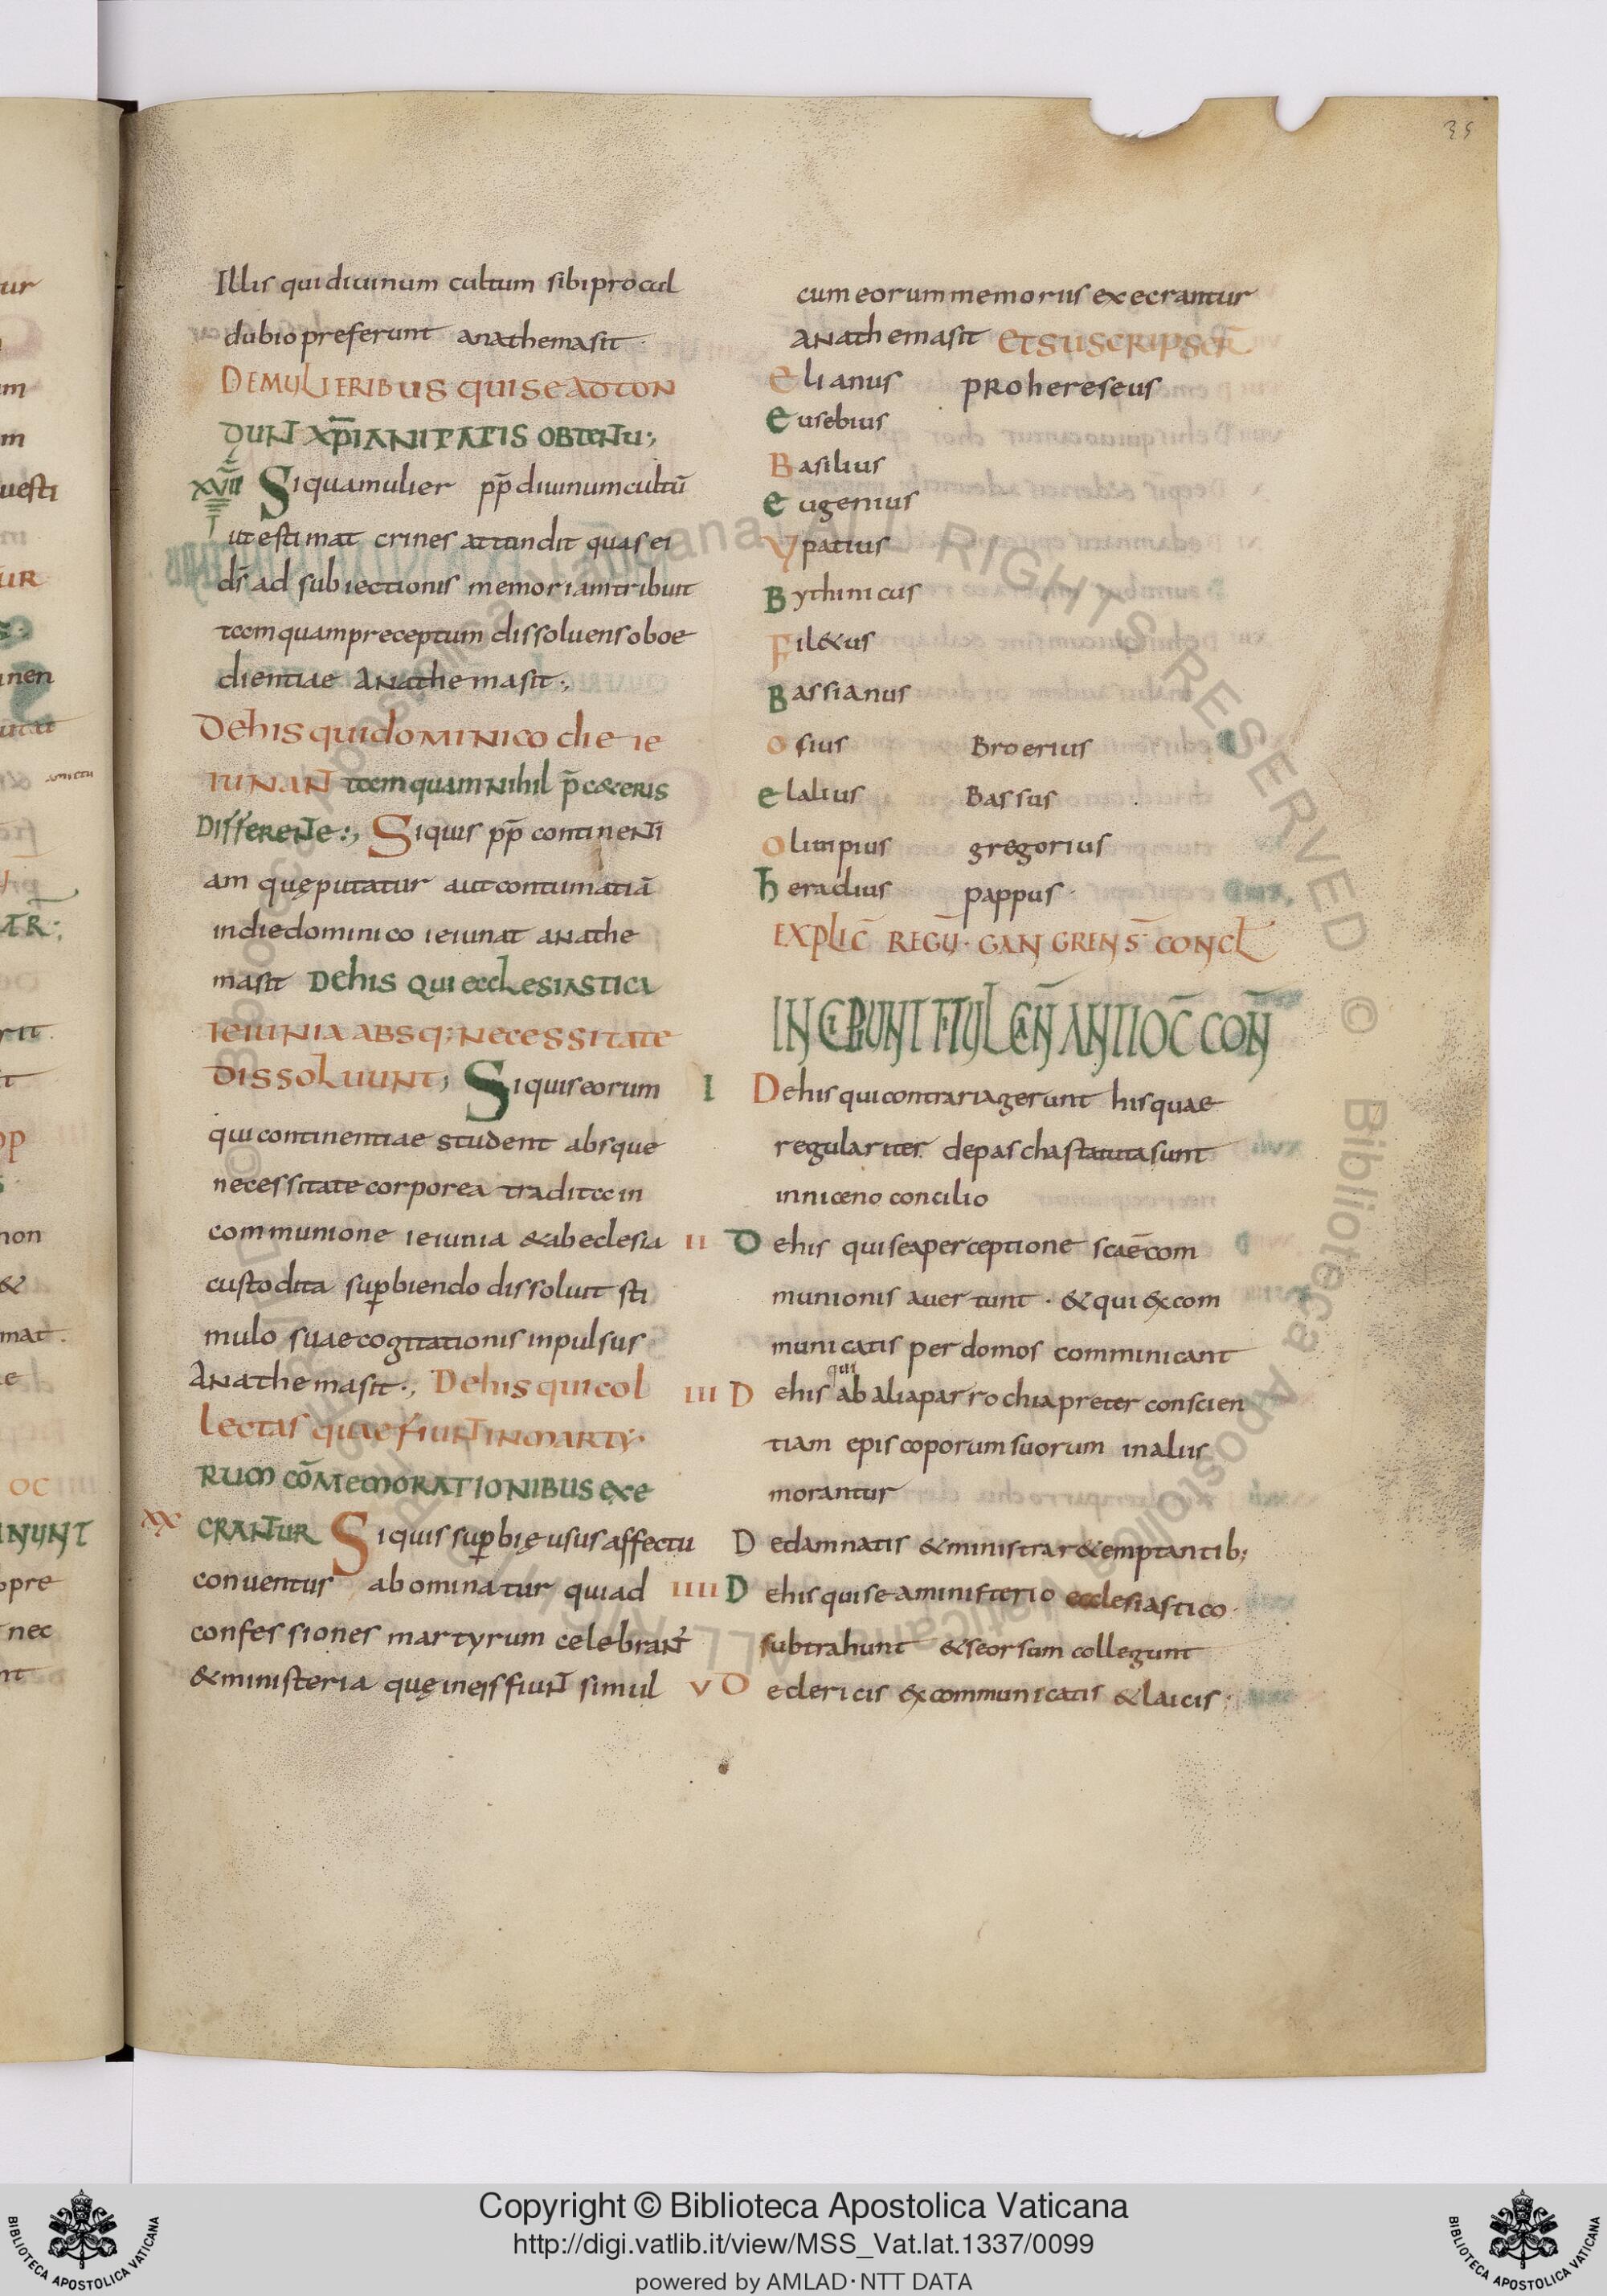 35
Illis qui diuinum cultum sibi procul
dubio preferunt anathema sit
DE MULIERIBUS QUI SE ADTON
DUNT XP̄IANITATIS OBTENTU;
XVIII Si qua mulier pp̄ diuinum cultū
ut estimat crines attundit quas ei
d̄s ad subiectionis memoriam tribuit
tamquam preceptum dissoluens oboe
dientiae Anathema sit;
De his qui dominico die ie
IUNANT tamquam nihil p̄ cęteris
DIFFERENTE; Si quis pp̄ continenti
am quę putatur aut contumatiā
in die dominico ieiunat anathe
ma sit De his qui ecclesiastica
IEIUNIA ABSQ; NECESSITATE
DISSOLUUNT; Si quis eorum
qui continentiae student absque
necessitate corporea tradita in
communione ieiunia & ab eclesia
custodita supbiendo dissoluit sti
mulo suae cogitationis inpulsus
Anathema sit; De his qui col
lectas quae fiunt in marty
RUM CŌMEMORATIONIBUS EXE
XX CRANTUR Si quis supbię usus affectu
conuentus abominatur qui ad
confessiones martyrum celebrant̄
& ministeria quę in eis fiunt simul
cum eorum memoriis execrantur
Anathema sit ET SUSCRIPSER̄
Elianus prohereseus
Eusebius
Basilius
Eugenius
Ypatius
Bythinicus
Fil&us
Bassianus
Osius Broerius
Elalius Bassus
Olimpius gregorius
Heradius pappus
EXPLIC̄ REGŪ. GANGRENS̄ CONCL̄
INCIPIUNT TITUL CAN̄ ANTIOC̄ CON̄
I De his qui contrariagerunt his quae
regulariter de pascha statuta sunt
in niceno concilio
II De his qui se a perceptione scāe com
munionis auertunt. & qui excom
municatis per domos comminicant
III De his qui ab alia parrochia preter conscien
tiam episcoporum suorum in aliis
morantur
De damnatis & ministrar& emptantib;
IIII De his qui se a ministerio ecclesiastico
subtrahunt & seorsum collegunt
V De clericis excommunicatis & laicis
Copyright © Biblioteca Apostolica Vaticana
http://digi.vatlib.it/view/MSS_Vat.lat.1337/0099
powered by AMLAD·NTT DATA
BIBLIOTECA APOSTOLICA VATICANA
BIBLIOTECA APOSTOLICA VATICANA